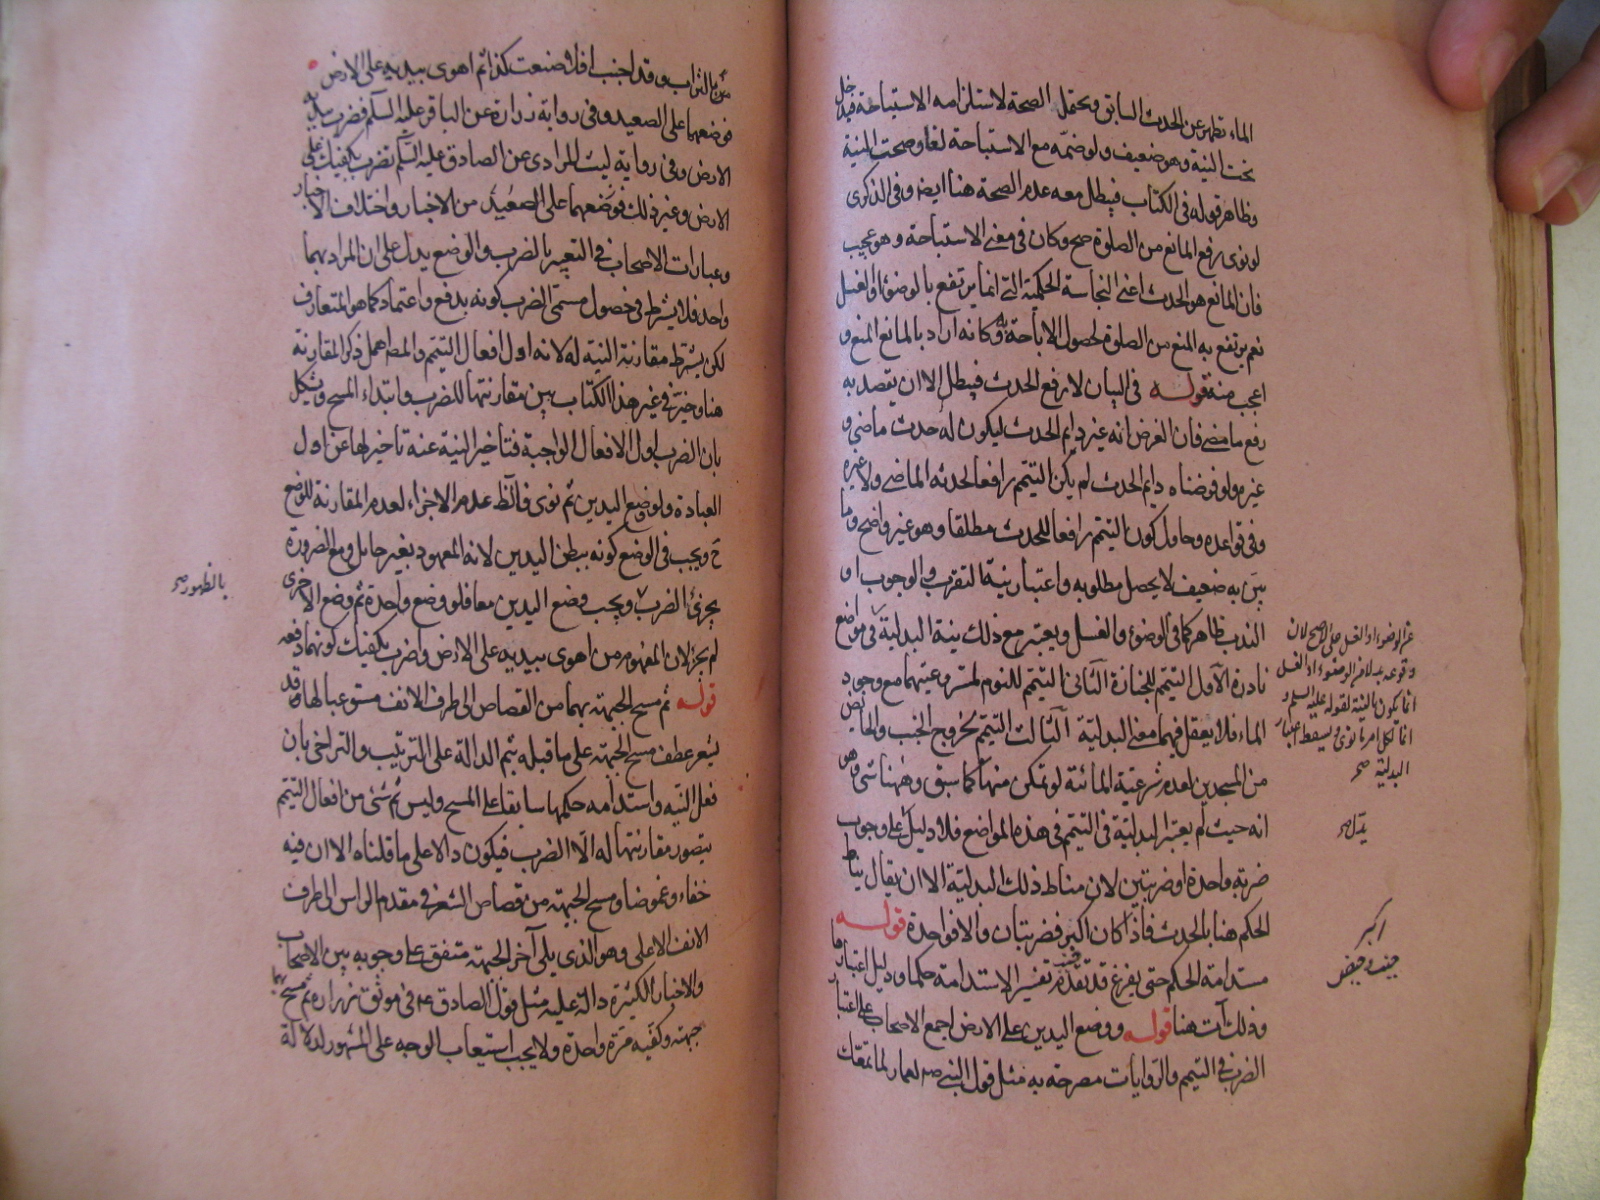 الماء تطهر عن الحدث السابق ويحتمل الصحة لاستلزامه الاستباحة فيدخل
تحت النية وهو ضعيف ولو ضمه مع الاستباحة لغا وصحت النية
وظاهر قوله في الكتاب فيبطل معه عدم الصحة هنا ايضا وفي الذكرى
لو نوى رفع المانع من الصلوة صح وكان في معنى الاستباحة وهو عجيب
فان المانع هو الحدث اعني النجاسة الحكمية التي انما يرتفع بالوضوء او الغسل
نعم يرتفع به المنع من الصلوة لحصول الاباحة به وكانه اراد بالمانع المنع و
اعجب منه قوله في البيان لا رفع الحدث فيبطل الا ان يقصد به
رفع ما مضى فان الغرض انه غير دايم الحدث ليكون له حدث ماضي و
غيره ولو فرضناه دايم الحدث لم يكن التيمم رافعا لحدثه الماضي ولا غيره
وفي قواعده وحاول كون التيمم رافعا للحدث مطلقا وهو غير واضح وما
بين به ضعيف لا يحصل مطلوبه واعتبار نية التقرب والوجوب او
الندب ظاهر كما في الوضوء والغسل ويعتبر مع ذلك نية البدلية في مواضع
نادرة الاول التيمم للجنازة الثاني التيمم للنوم لمشروعيتهما مع وجود
الماء فلا يعقل فيهما معنى البدلية الثالث التيمم لخروج الجنب والحايض
من المسجدين لعدم شرعية المائية لو تمكن منها كما سبق وههنا شئ وهو
انه حيث لم يعتبر البدلية في التيمم في هذه المواضع فلا دليل على وجوب
ضربة واحدة او ضربتين لان مناط ذلك البدلية الا ان يقال يناط
الحكم هنا بالحدث فاذا كان اكبر فضربتان والا فواحدة قوله
مستدامة الحكم حتى يفرغ قد تقدم تفسير الاستدامة حكما ودليل اعتبارها
وذلك آت هنا قوله ووضع اليدين على الارض اجمع الاصحاب على اعتبار
الضرب في التيمم والروايات مصرحة به مثل قول النبي صه لعمار لما تمعك
غير الوضوء او الغسل على الاصح لان
وقوعه بدلا من الوضوء او الغسل
انما يكون بالنية لقوله عليه السلم و
انما لكل امرئ ما نوى ويسقط اعتبار
البدلية صح
يدل صح
اكبر
في التراب وقد اجنب افلا صنعت كذا ثم اهوى بيديه على الارض
فوضعهما على الصعيد وفي رواية زرارة عن الباقر عليه السلم فضرب بيديه
الارض وفي رواية ليث المرادي عن الصادق عليه السلم تضرب بكفيك على
الارض وغير ذلك فوضعهما على الصعيد من الاخبار واختلاف الاخبار
وعبارات الاصحاب في التعبير بالضرب والوضع يدل على ان المراد بهما
واحد فلا يشترط في حصول مسمى الضرب كونه بدفع واعتماد كما هو المتعارف
لكن يشترط مقارنة النية له لانه اول افعال التيمم والمص اهمل ذكر المقارنة
هنا وخير في غير هذا الكتاب بين مقارنتها للضرب وابتداء المسح ويشكل
بان الضرب اول الافعال الواجبة فتاخير النية عنه تاخير لها عن اول
العبادة ولو وضع اليدين ثم نوى فالظ عدم الاجزاء لعدم المقارنة للوضع
ح ويجب في الوضع كونه ببطن اليدين لانه المعهود بغير حايل ومع الضرورة
يجزئ الضرب ويجب وضع اليدين معا فلو وضع واحدة ثم وضع الاخرى
لم يجز لان المفهوم من اهوى بيديه على الارض واضرب بكفيك كونهما دفعة
قوله ثم مسح الجبهة بهما من القصاص الى طرف الانف مستوعبا لها وقد
يشعر عطف مسح الجبهة على ما قبله بثم الدالة على الترتيب والتراخي بان
فعل النية واستدامة حكمها سابقا على المسح وليس ثم شئ من افعال التيمم
يتصور مقارنتها له الا الضرب فيكون دالا على ما قلناه الا ان فيه
خفاء وغموضا ومسح الجبهة من قصاص الشعر في مقدم الراس الى طرف
الانف الاعلى وهو الذي يلي آخر الجبهة متفق على وجوبه بين الاصحاب
والاخبار الكثيرة دالة عليه مثل قول الصادق ع في موثق زرارة ثم مسح بهما
جبهته وكفيه مرة واحدة ولا يجب استيعاب الوجه على المشهور لدلالة
بالظهور صح